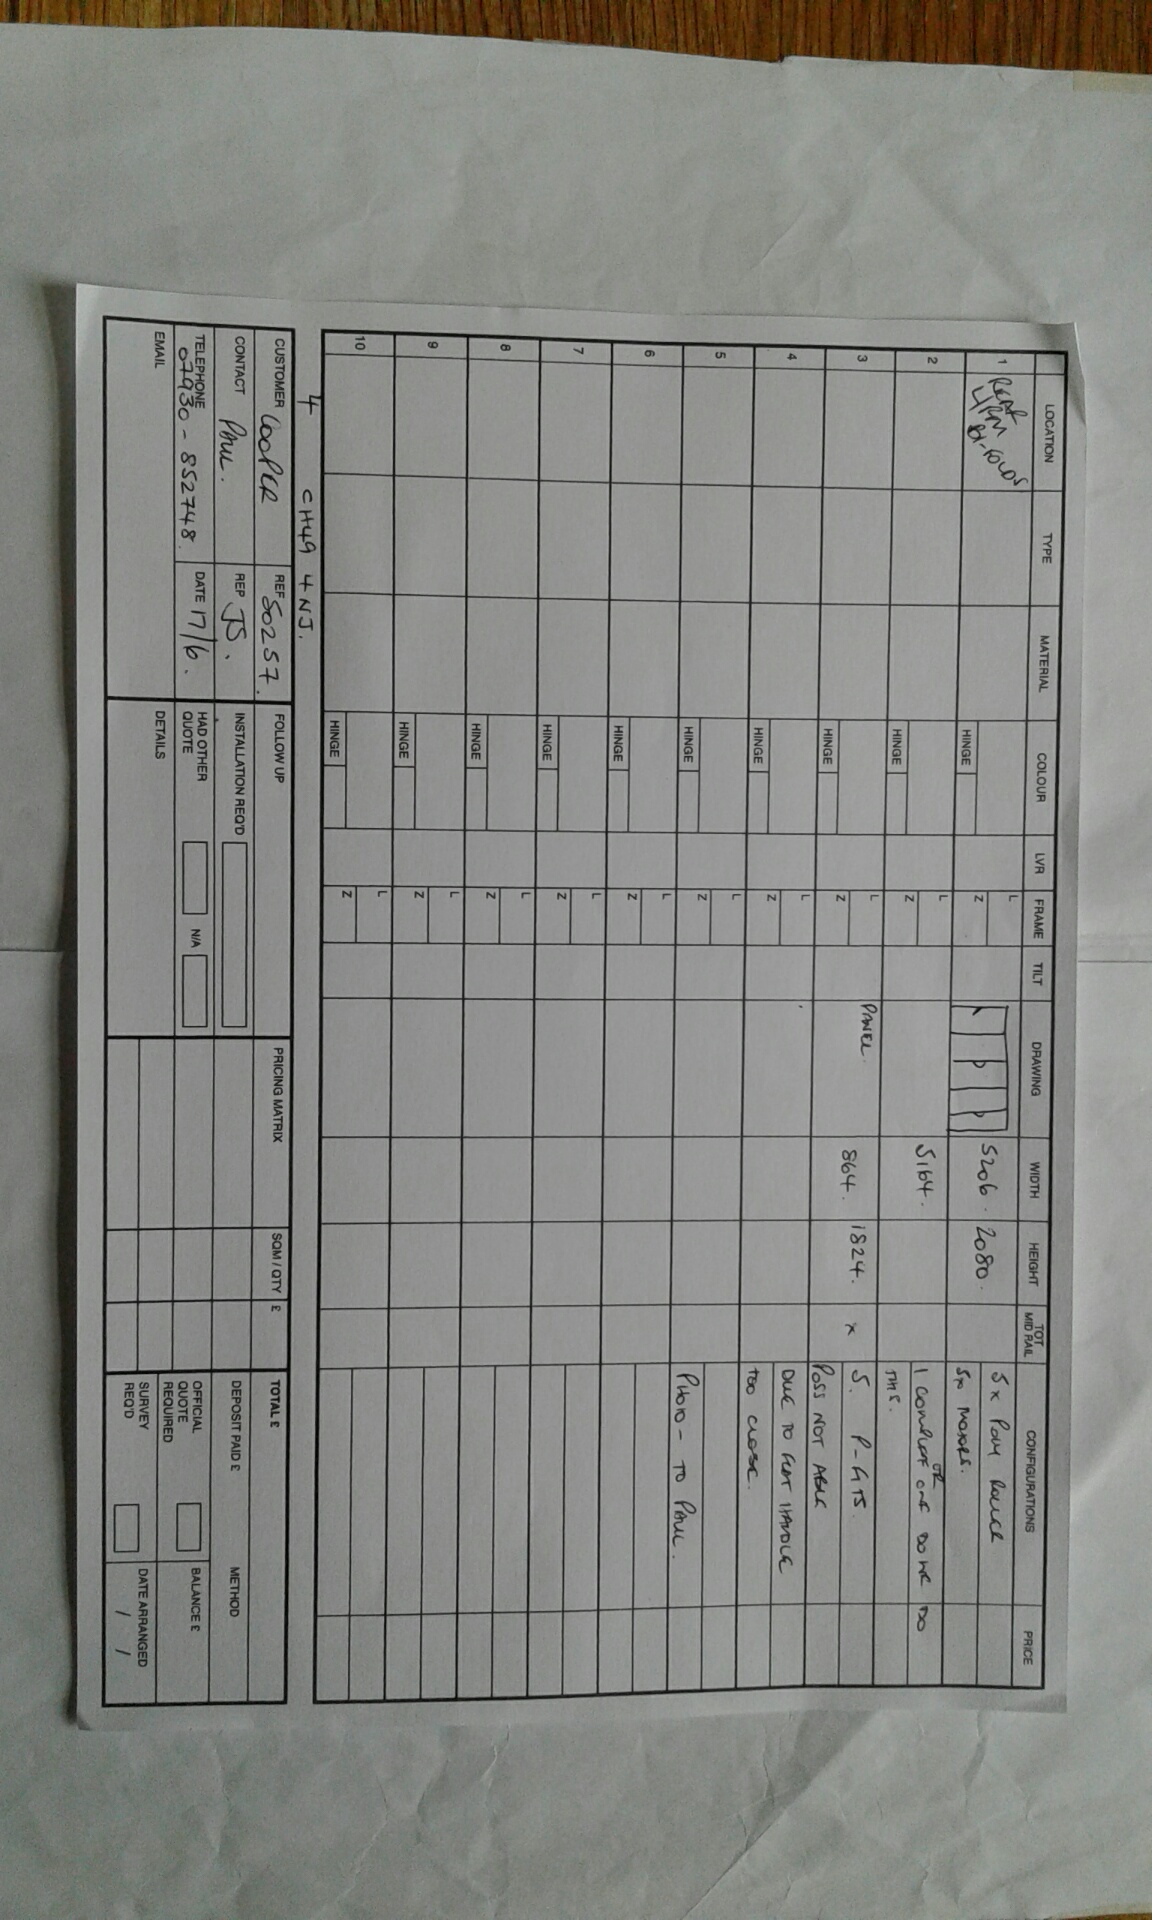 LOCATION TYPE MATERIAL COLOUR LVR FRAME TILT DRAWING WIDTH HEIGHT TOT MID RAIL CONFIGURATIONS PRICE
1 REAR BI-FOLDS HINGE L Z 5206. 2080. 5 x ROLLER
5x MOTORS.
2 HINGE L Z 5164. OR
1 COMPLETE ONE DO WE DO
THIS.
3 HINGE L Z PANEL. 864. 1824. x 5. P-FITS.
POSS NOT ABLE
4 HINGE L Z DUE TO FLAT HANDLE
TOO CLOSE.
5 HINGE L Z
PHOTO - TO PAUL.
6 HINGE L Z
7 HINGE L Z
8 HINGE L Z
9 HINGE L Z
10 HINGE L Z
4 CH49 4NJ.
CUSTOMER COOPER REF 50257. FOLLOW UP PRICING MATRIX SQM / QTY £ TOTAL £
CONTACT PAUL. REP JS. INSTALLATION REQ'D DEPOSIT PAID £ METHOD
TELEPHONE 07930-852748. DATE 17/6. HAD OTHER QUOTE N/A OFFICIAL QUOTE REQUIRED BALANCE £
EMAIL DETAILS SURVEY REQ'D DATE ARRANGED / /